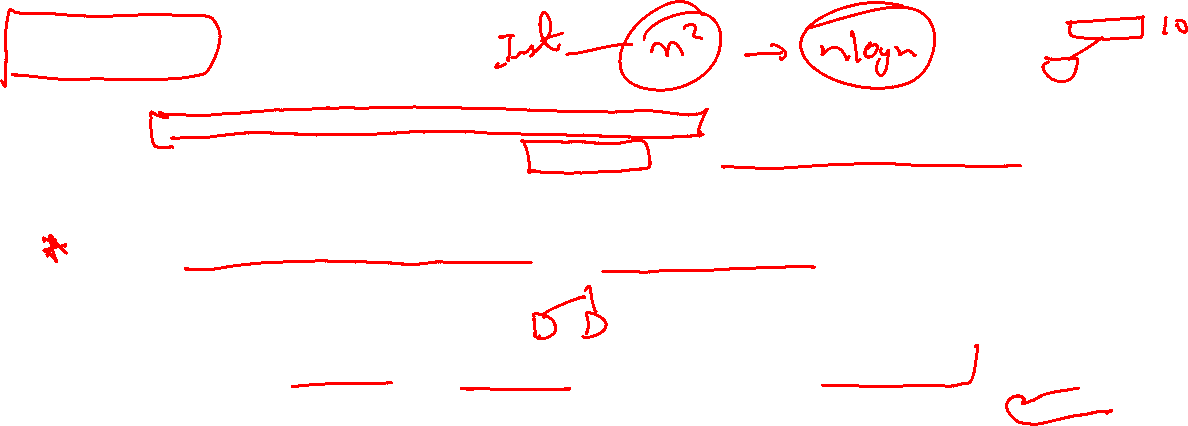 Inst n² → nlogn 10
* 
D D